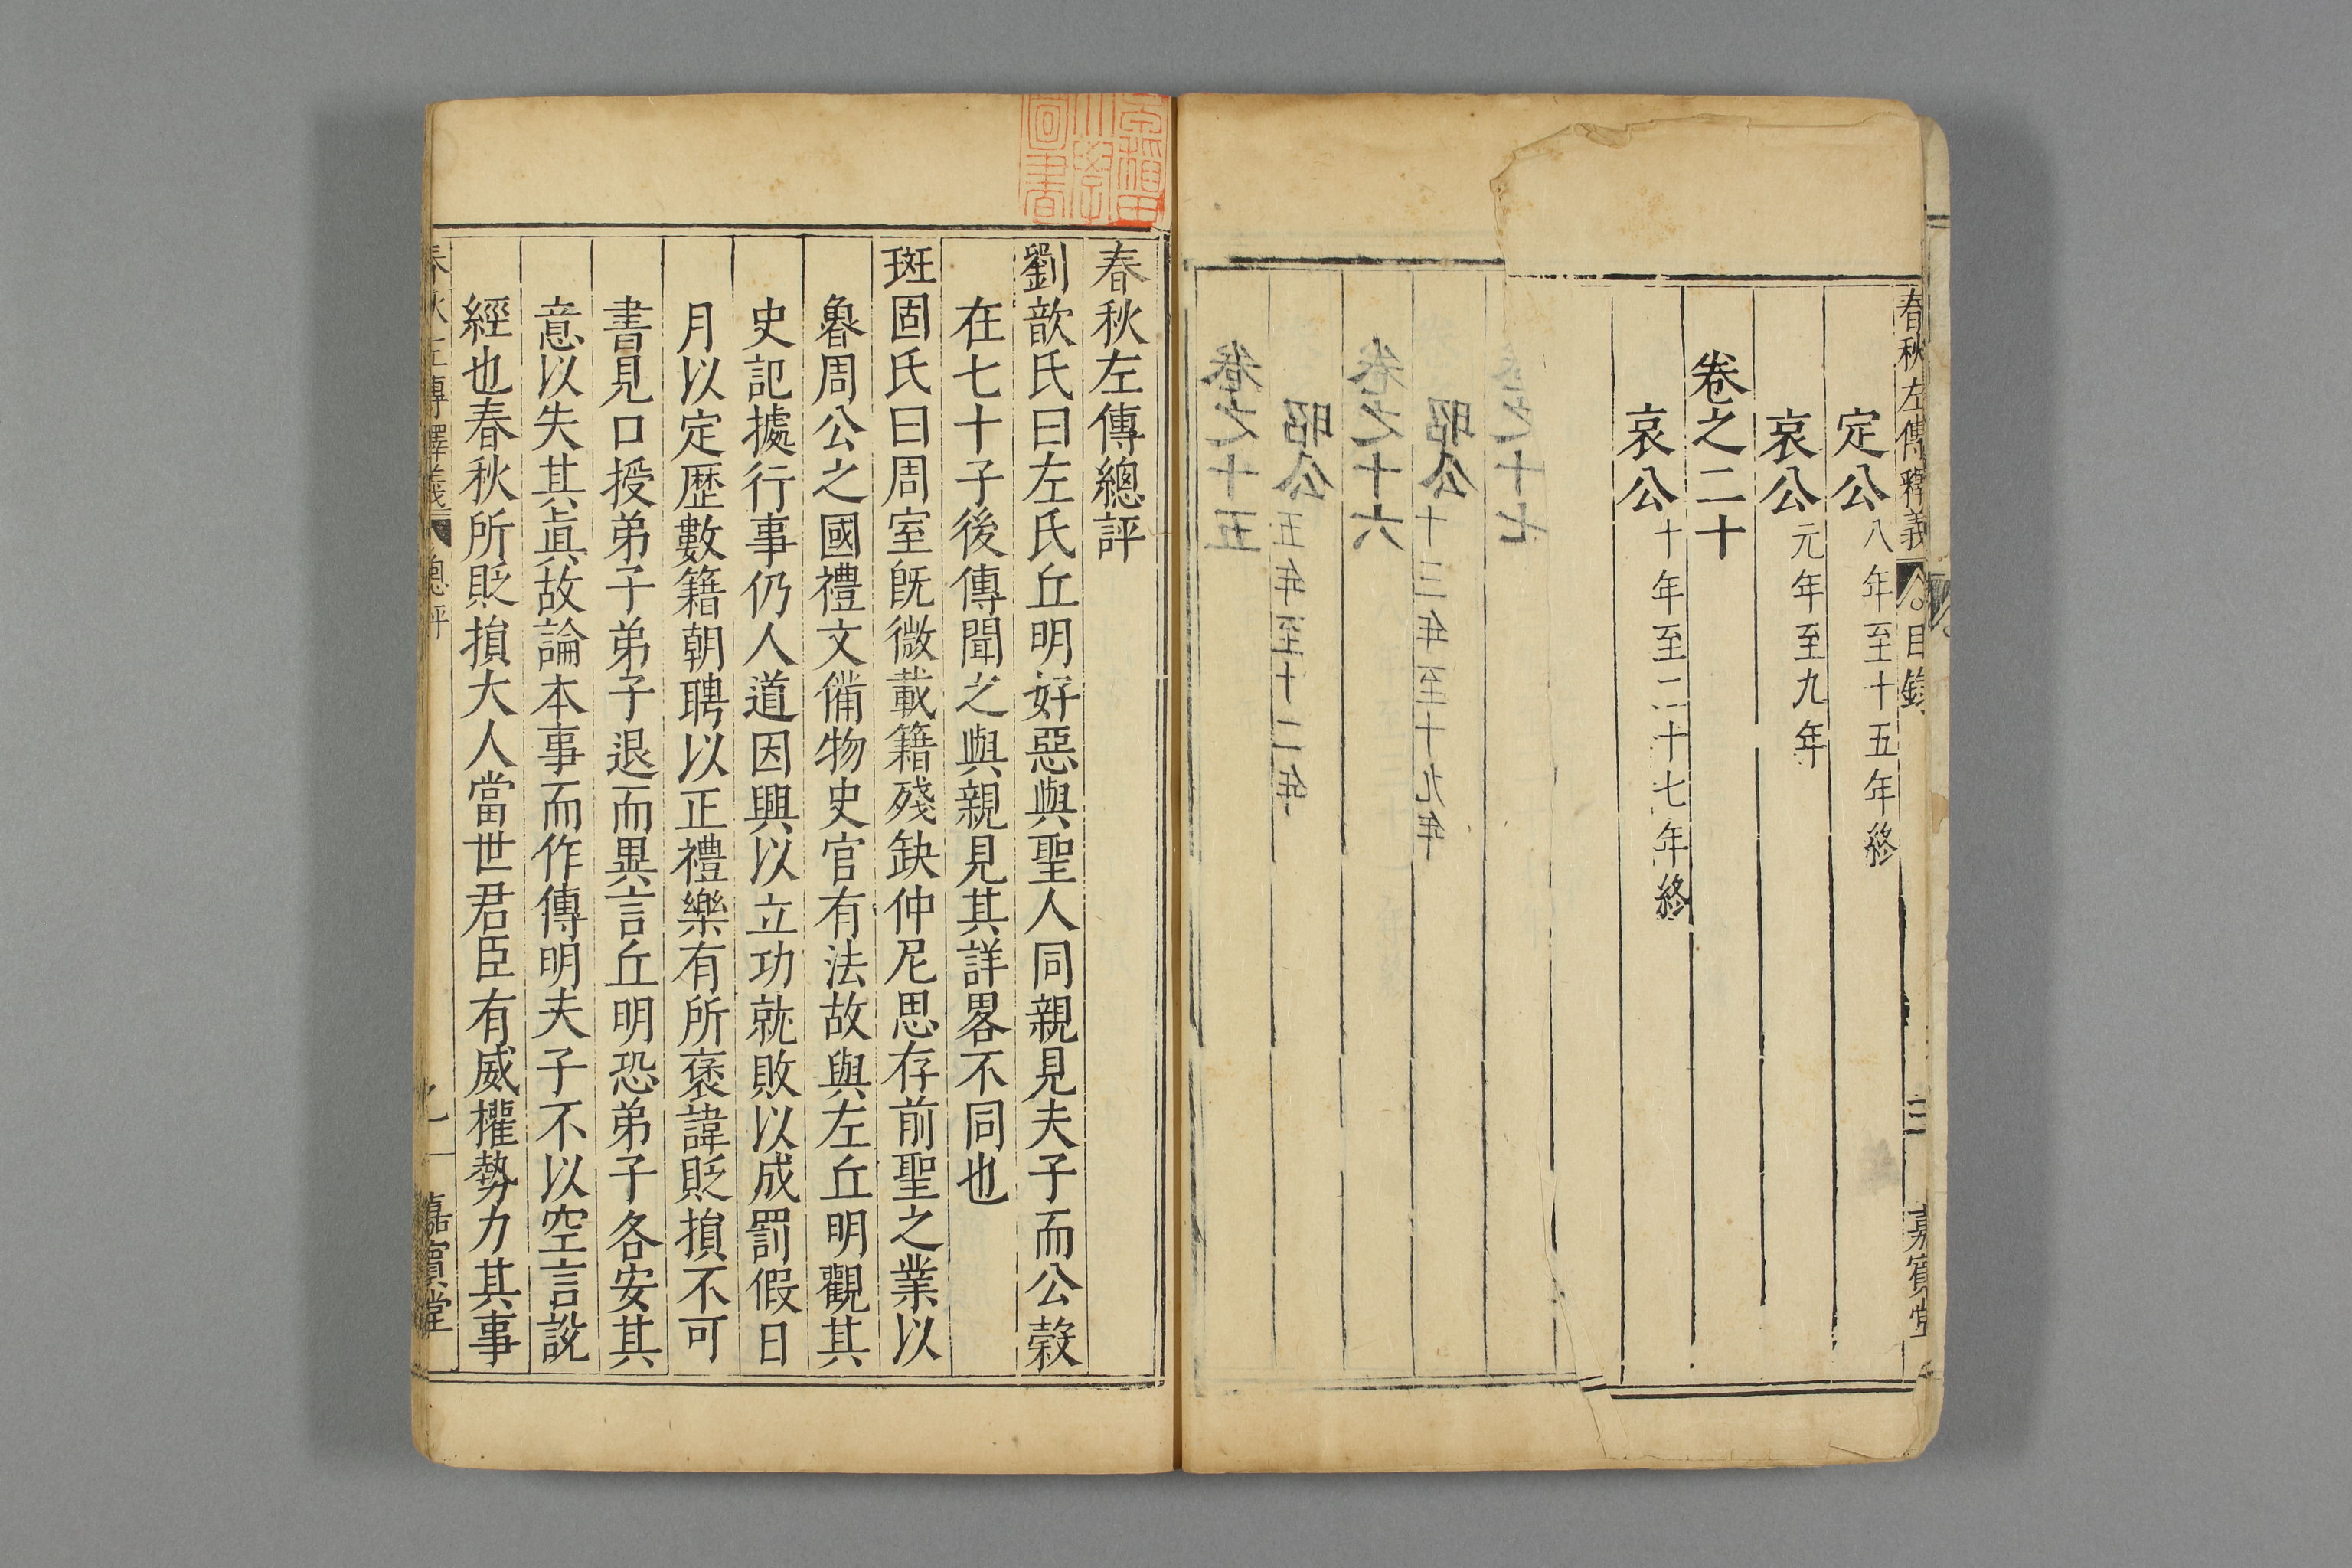 春秋左傳釋義
目錄
三
嘉賓堂
定公八年至十五年終
哀公元年至九年
卷之二十
哀公十年至二十七年終
卷之十七
昭公十三年至十九年
卷之十六
昭公五年至十二年
卷之十五
早稲田
大學
圖書
春秋左傳總評
劉歆氏曰左氏丘明好惡與聖人同親見夫子而公穀
在七十子後傳聞之與親見其詳畧不同也
班固氏曰周室旣微載籍殘缺仲尼思存前聖之業以
魯周公之國禮文備物史官有法故與左丘明觀其
史記據行事仍人道因興以立功就敗以成罰假日
月以定歷數籍朝聘以正禮樂有所褒諱貶損不可
書見口授弟子弟子退而異言丘明恐弟子各安其
意以失其眞故論本事而作傳明夫子不以空言說
經也春秋所貶損大人當世君臣有威權勢力其事
春秋左傳釋義
總評
一
嘉賓堂